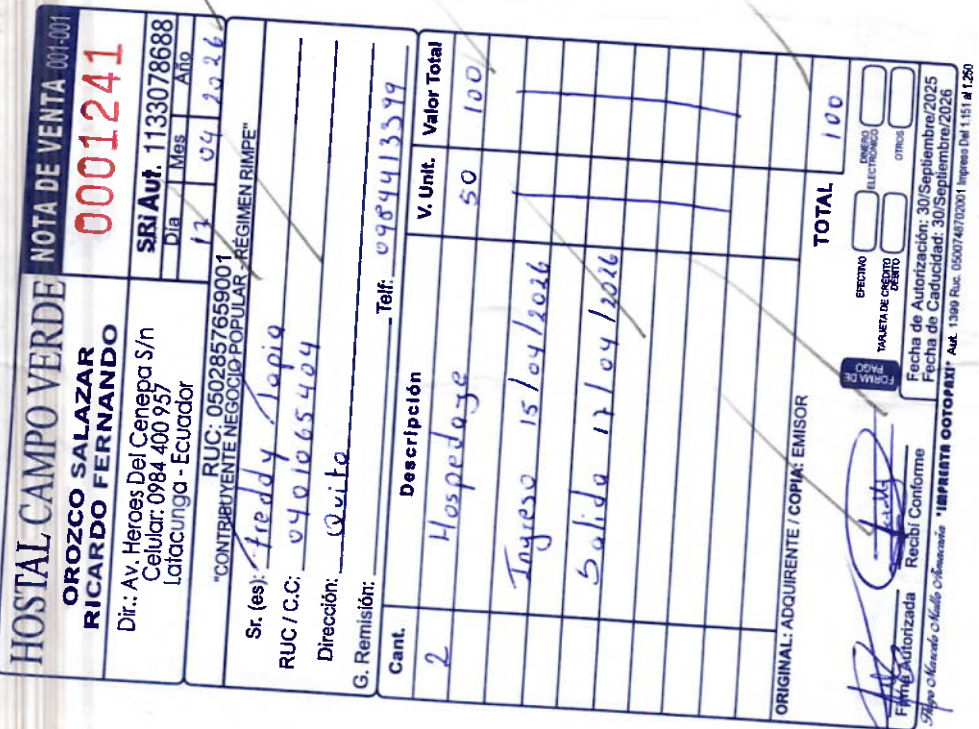 HOSTAL CAMPO VERDE
NOTA DE VENTA 001-001
OROZCO SALAZAR
RICARDO FERNANDO
0001241
Dir.: Av. Heroes Del Cenepa S/n
Celular: 0984 400 957
Latacunga - Ecuador
S.R.i Aut. 1133078688
Día Mes Año
17 04 2026
RUC: 0502857659001
"CONTRIBUYENTE NEGOCIO POPULAR - RÉGIMEN RIMPE"
Sr. (es): Freddy Tapia
RUC / C.C: 0401065404
Dirección: Quito
G. Remisión: Telf: 0984413399
Cant. Descripción V. Unit. Valor Total
2 Hospedaje 50 100
Ingreso 15/04/2026
Salida 17/04/2026
ORIGINAL: ADQUIRENTE / COPIA: EMISOR
TOTAL 100
FORMA DE PAGO
EFECTIVO
DINERO ELECTRÓNICO
TARJETA DE CREDITO DEBITO
OTROS
Firma Autorizada
Recibí Conforme
Fecha de Autorización: 30/Septiembre/2025
Fecha de Caducidad: 30/Septiembre/2026
"IMPRENTA COTOPAXI" Aut. 1399 Ruc. 0500748702001 Impreso Del 1.151 al 1.250